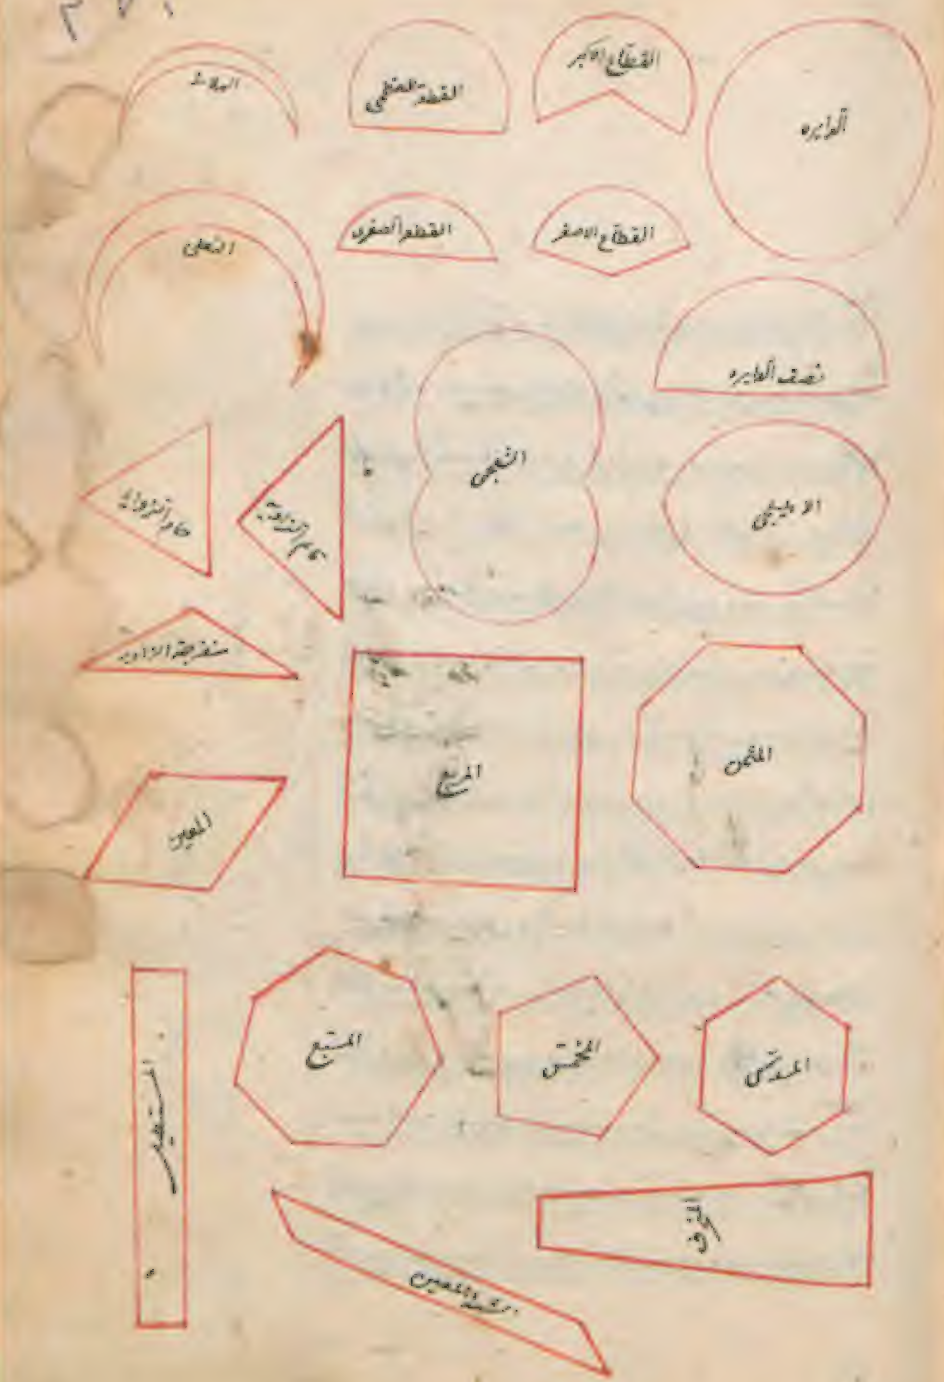 الدايره
القطاع الاكبر
القطعة العظمى
الهلالى
القطاع الاصغر
القطعة الصغرى
النعلى
نصف الدايره
الشلجمى
الاهليلجى
قايم الزاوية
حاد الزوايا
منفرجة الزاويه
المثمن
المربع
المعين
المسدس
المخمس
المسبع
المستطيل
المنحرف
الشبيه بالمعين